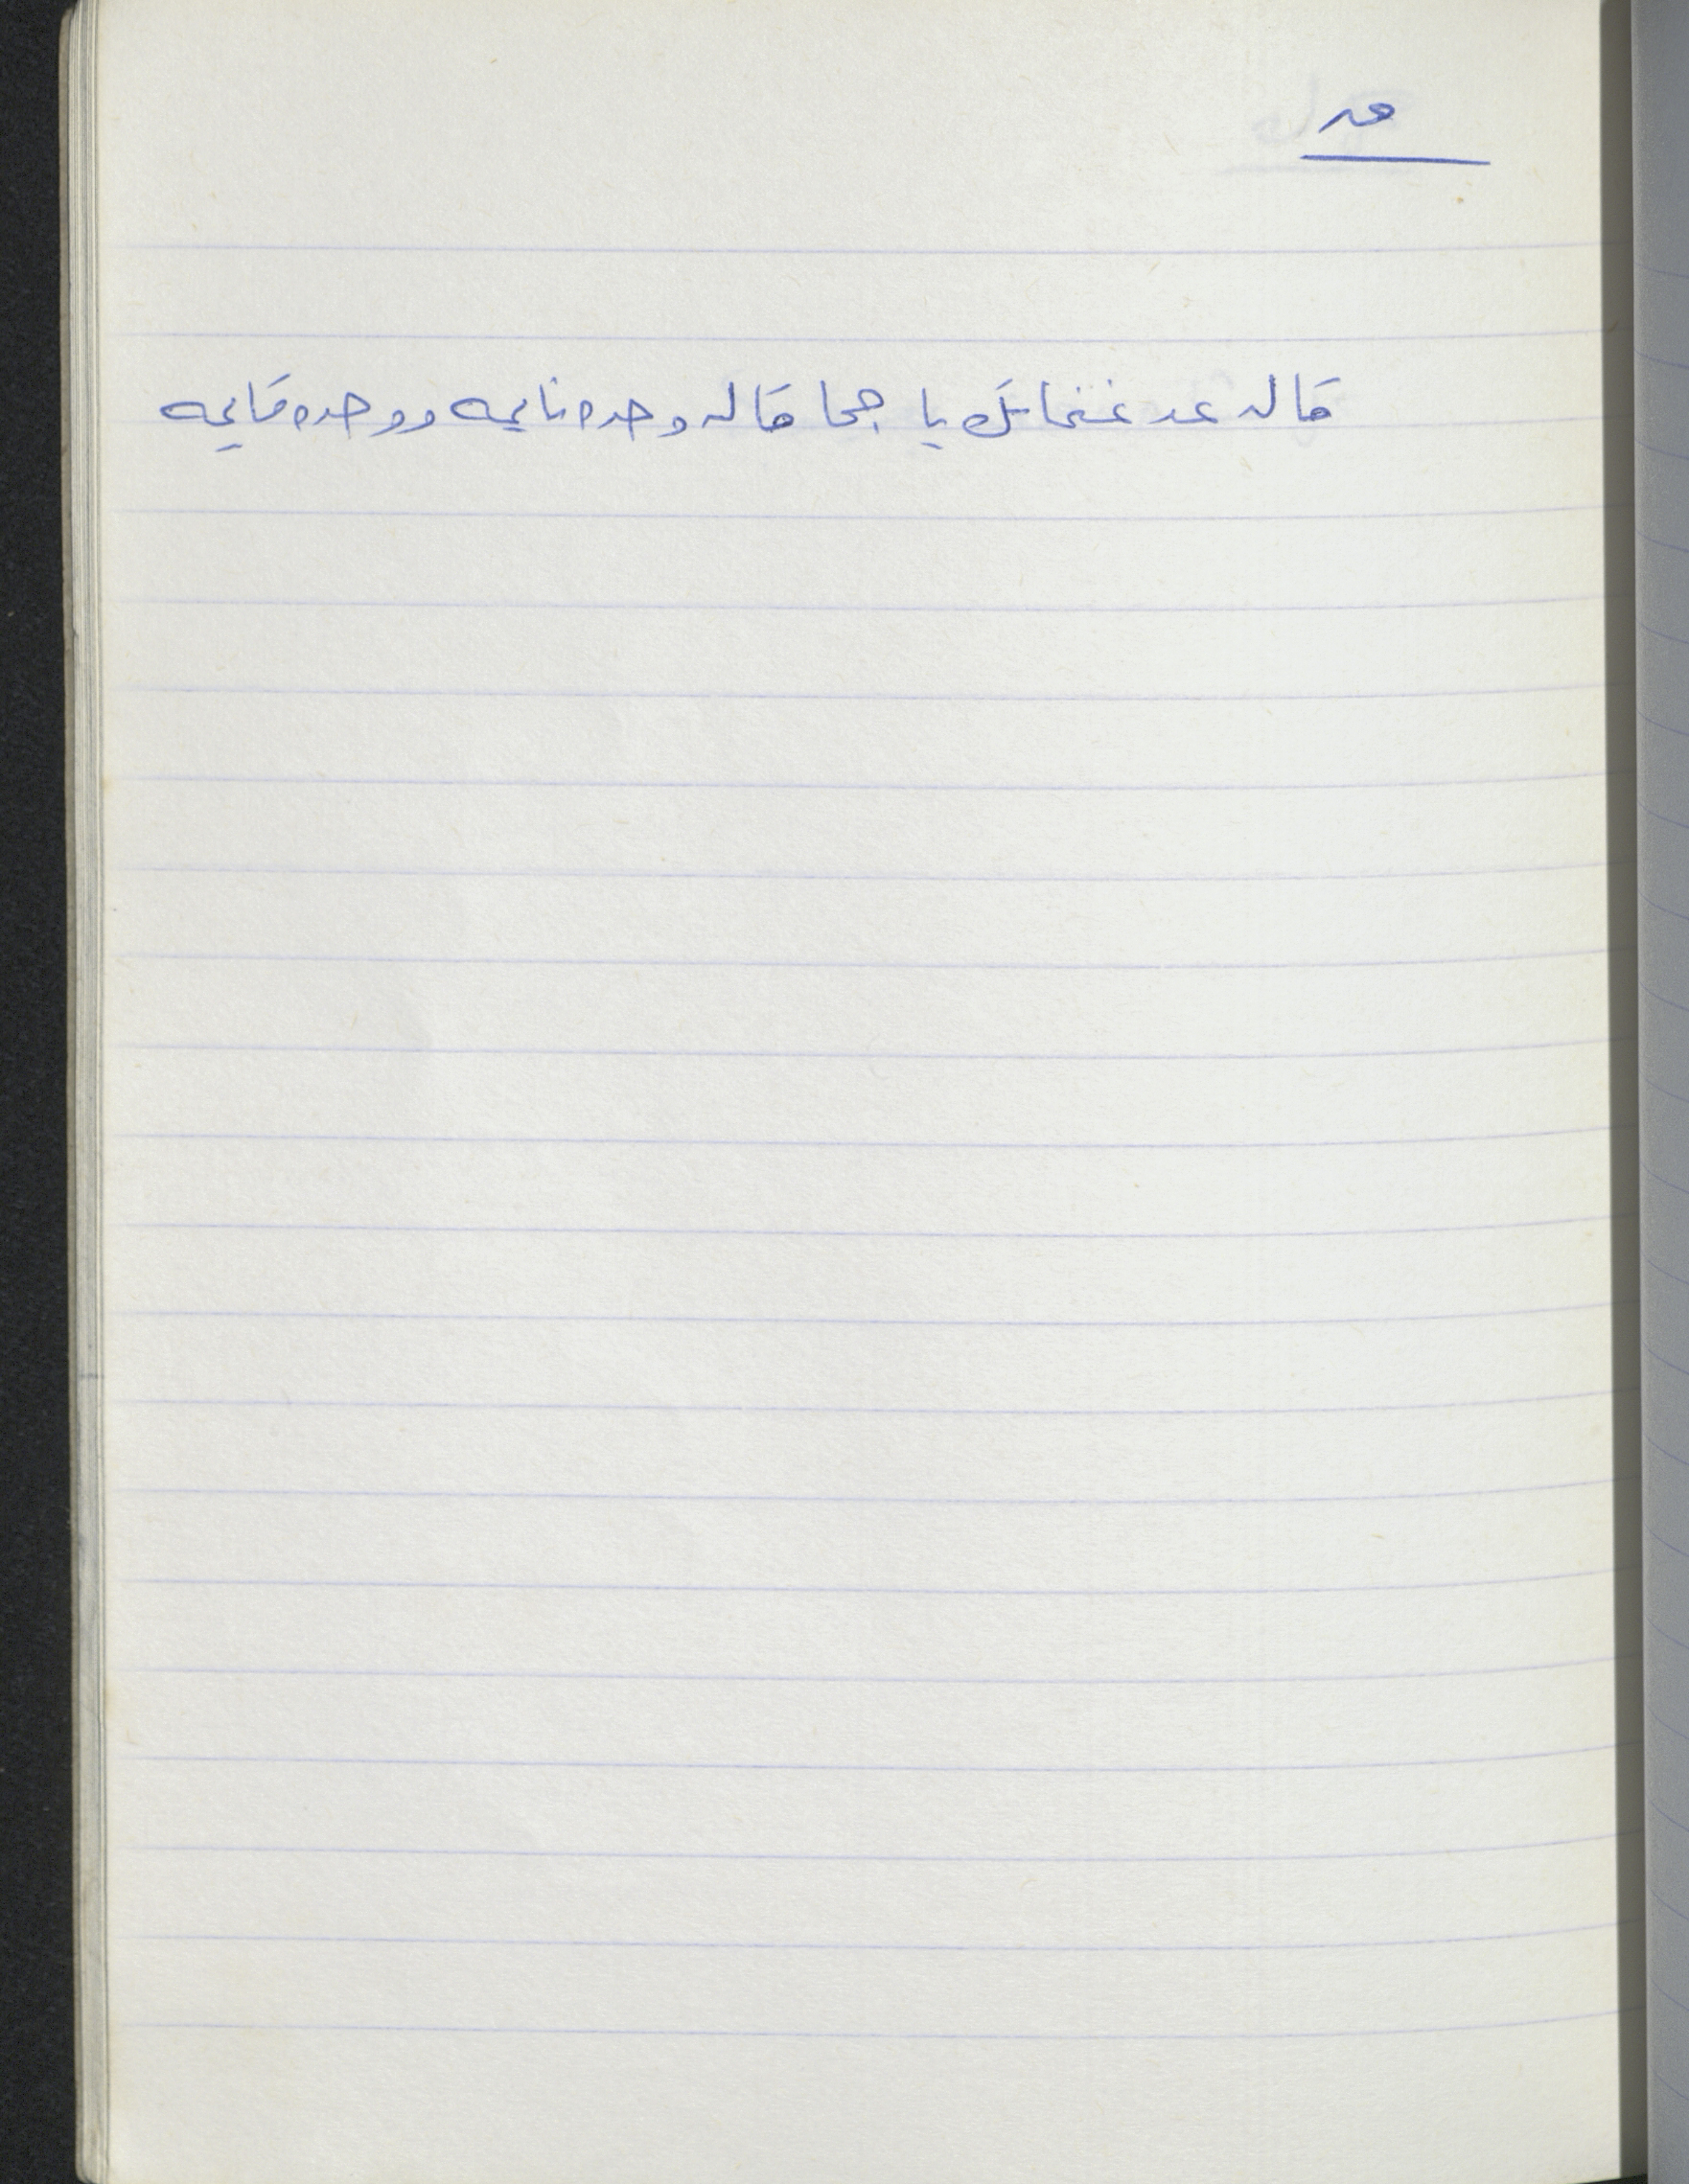 عد
قاله عد غنماتك يا جحا قاله وحده نايمه ووحده قايمه